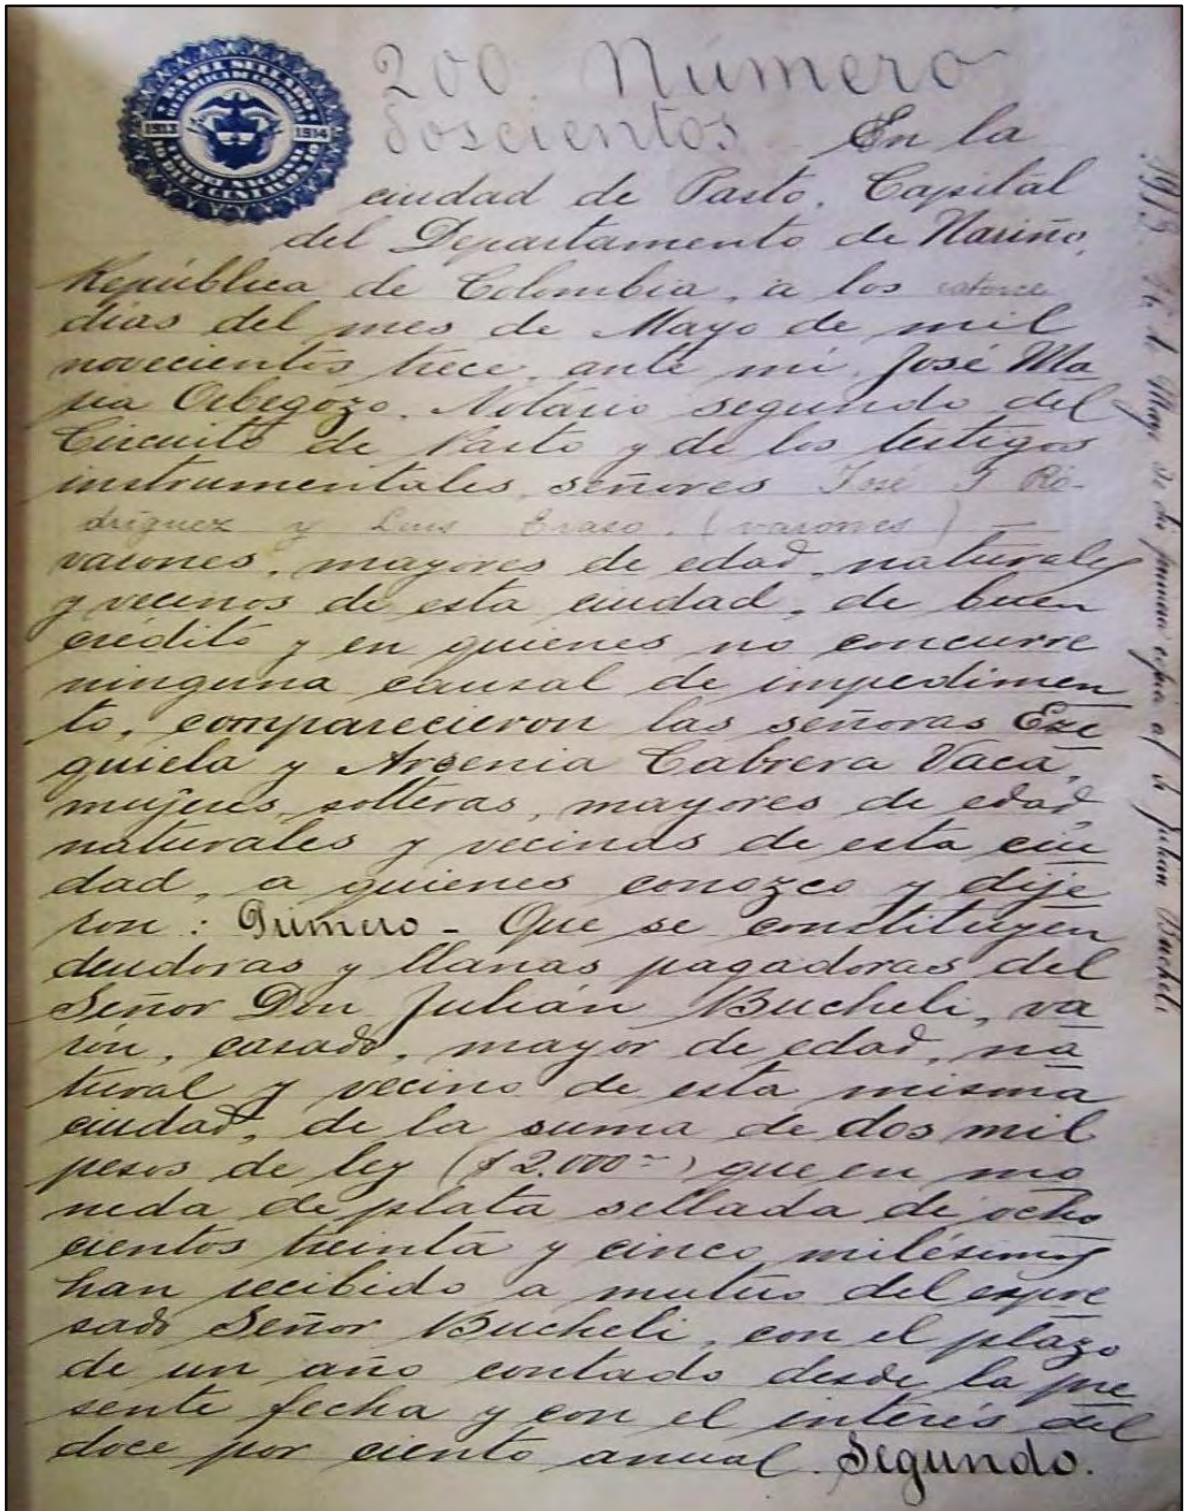 PAPEL SELLADO
REPUBLICA DE COLOMBIA
1913 1914
200. Número
doscientos. En la
ciudad de Pasto, Capital
del Departamento de Nariño,
República de Colombia, a los catorce
dias del mes de Mayo de mil
novecientos trece, ante mi, José Ma
ria Orbegozo, Notario segundo del
Circuito de Pasto y de los testigos
instrumentales, señores José I Ro-
driguez y Luis Eraso. (varones) —
varones, mayores de edad, naturales
y vecinos de esta ciudad, de buen
crédito y en quienes no concurre
ninguna causal de impedimen
to, comparecieron las señoras Eze
quiela y Arsenia Cabrera Vaca,
mujeres, solteras, mayores de edad,
naturales y vecinas de esta ciu
dad, a quienes conozco y dije
ron: Primero - Que se constituyen
deudoras y llanas pagadoras del
Señor Don Julián Bucheli, va
rón, casado, mayor de edad, na
tural y vecino de esta misma
ciudad, de la suma de dos mil
pesos de ley ($2.000=) que en mo
neda de plata sellada de ocho
cientos treinta y cinco milésimos
han recibido a mutuo del expre
sado Señor Bucheli, con el plazo
de un año contado desde la pre
sente fecha y con el interés del
doce por ciento anual. Segundo.
1913. de Mayo di primera copia al Sr Julián Bucheli